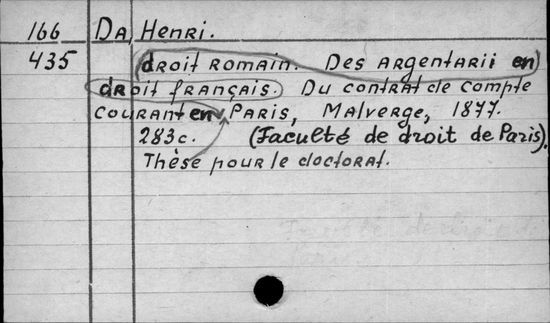 166 Da, Henri.
435 droit romain. Des argentarii en
droit français. Du contrat de compte
courant en Paris, Malverge, 1877.
283c. (Faculté de droit de Paris).
Thèse pour le doctorat.